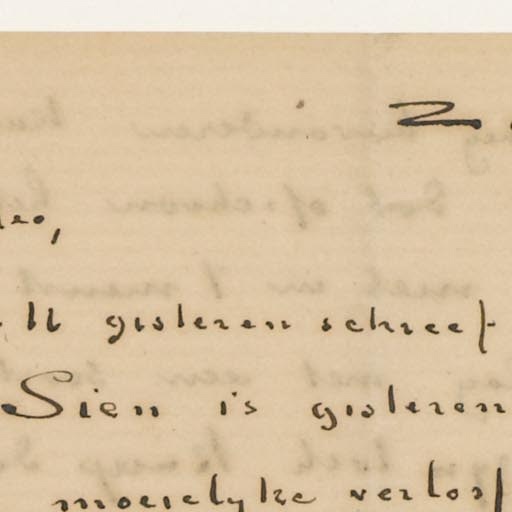 Z
eo,
U gisteren schreef
Sien is gisteren
moeielyke verloss